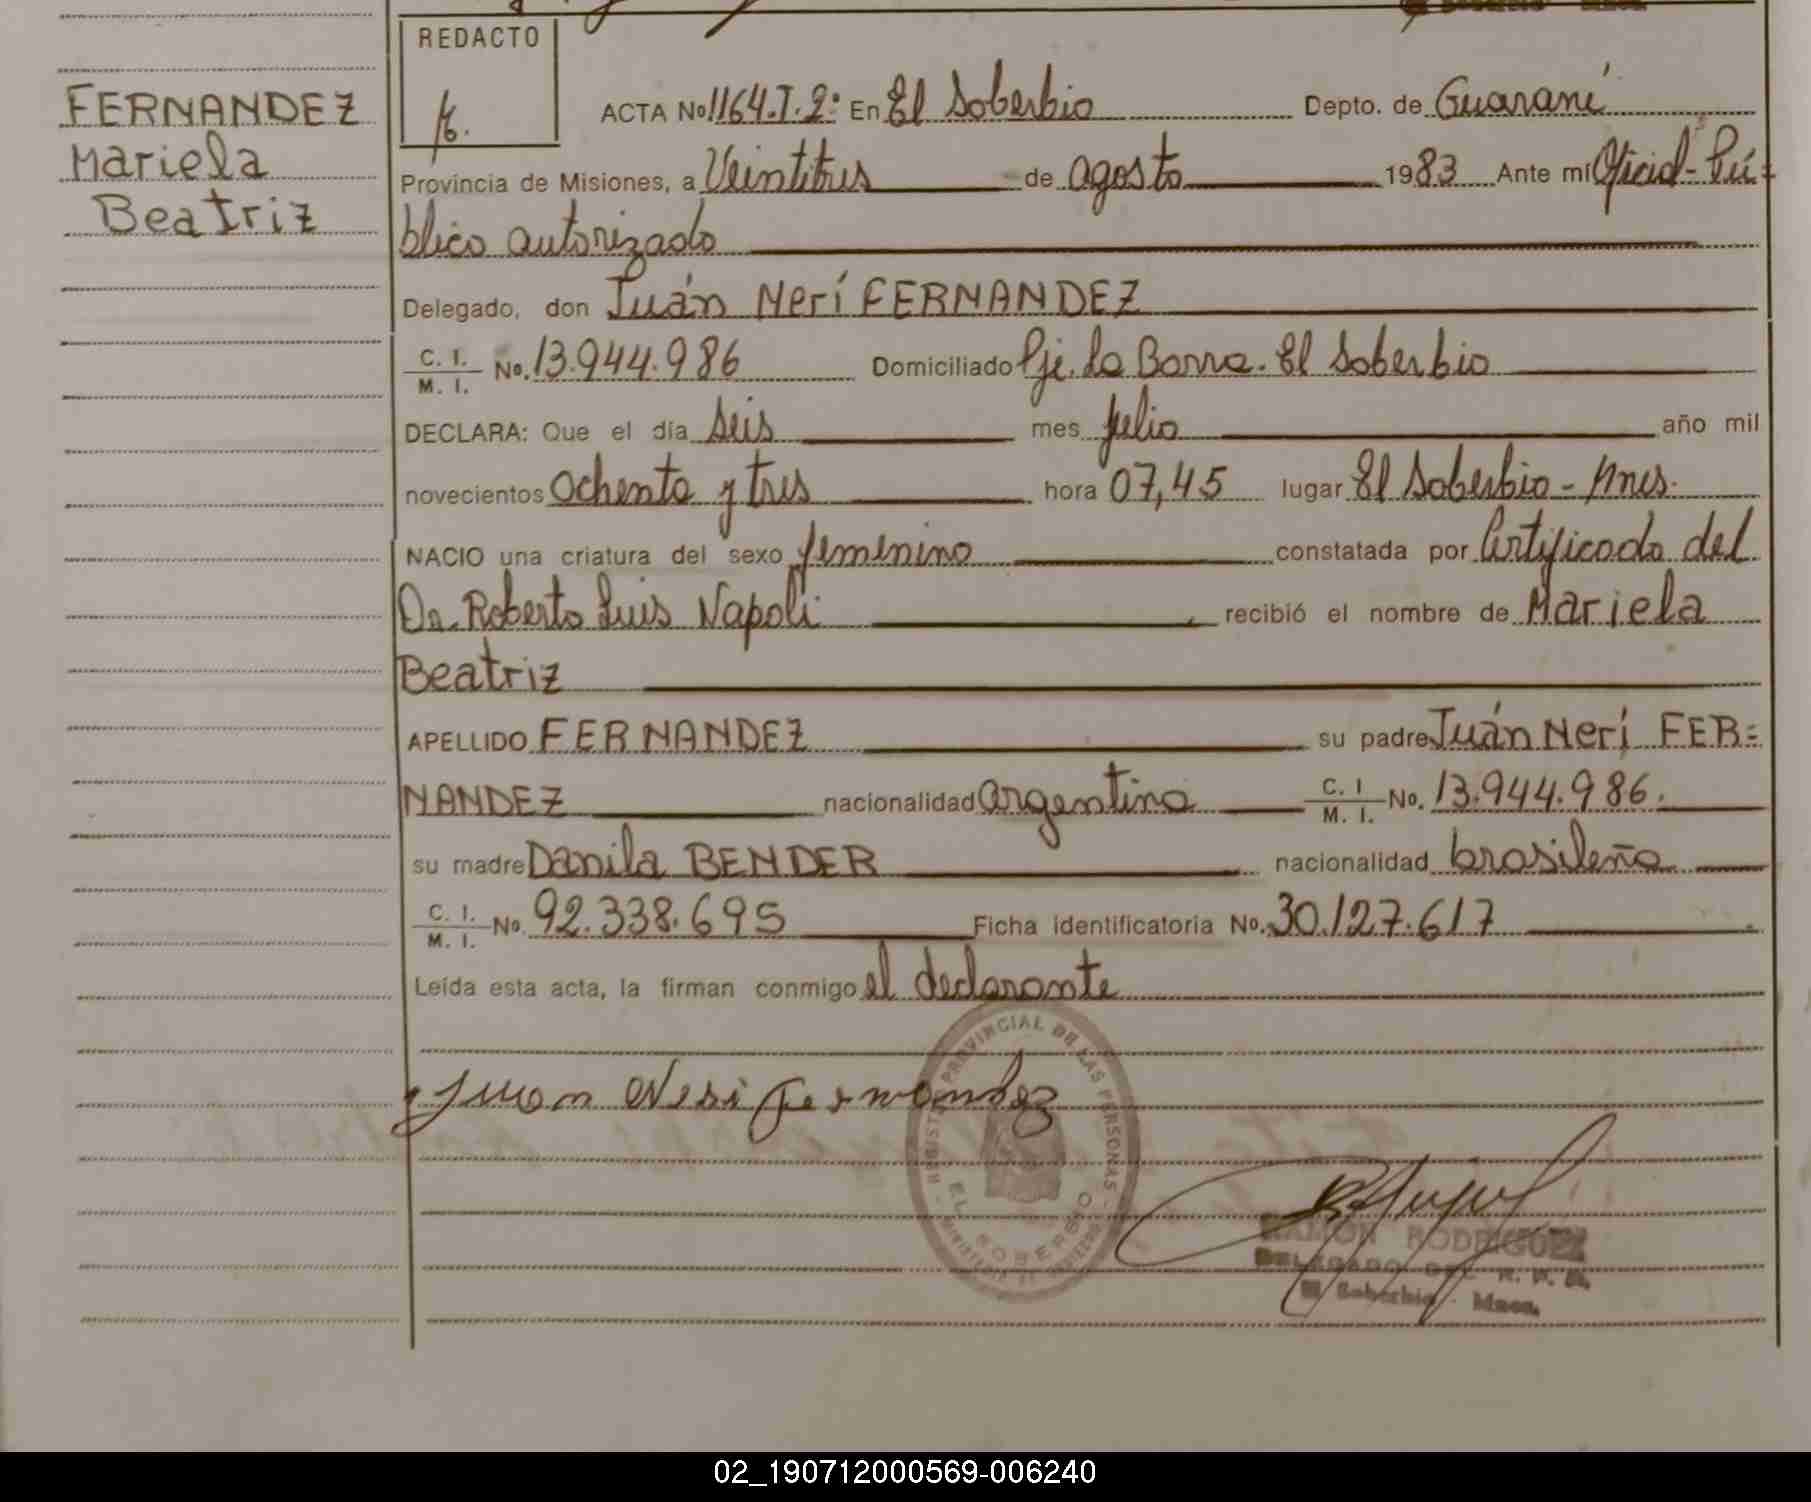 REDACTO
FERNANDEZ
Mariela
Beatriz
ACTA No 1164.T.2º En El Soberbio Depto. de Guaraní
Provincia de Misiones, a Veintitres de agosto 1983 Ante mí Oficial Pú-
blico autorizado
Delegado, don Juán Nerí FERNANDEZ
C. I. M. I. No. 13.944.986 Domiciliado Pje. La Barra. El Soberbio
DECLARA: Que el día seis mes julio año mil
novecientos ochenta y tres hora 07,45 lugar El Soberbio - Mnes.
NACIO una criatura del sexo femenino constatada por Certificado del
Dr. Roberto Luis Napoli, recibió el nombre de Mariela
Beatriz
APELLIDO FERNANDEZ su padre Juán Nerí FER=
NANDEZ nacionalidad argentina C. I M. I. No. 13.944.986.
su madre Danila BENDER nacionalidad brasileña
C. I. M. I. No. 92.338.695 Ficha identificatoria No. 30.127.617.
Leída esta acta, la firman conmigo el declarante
Juan Neri Fernandez
REGISTRO PROVINCIAL DE LAS PERSONAS
EL SOBERBIO
RAMON RODRIGUEZ
DELEGADO DEL R. P. P.
El Soberbio - Mnes.
02_190712000569-006240